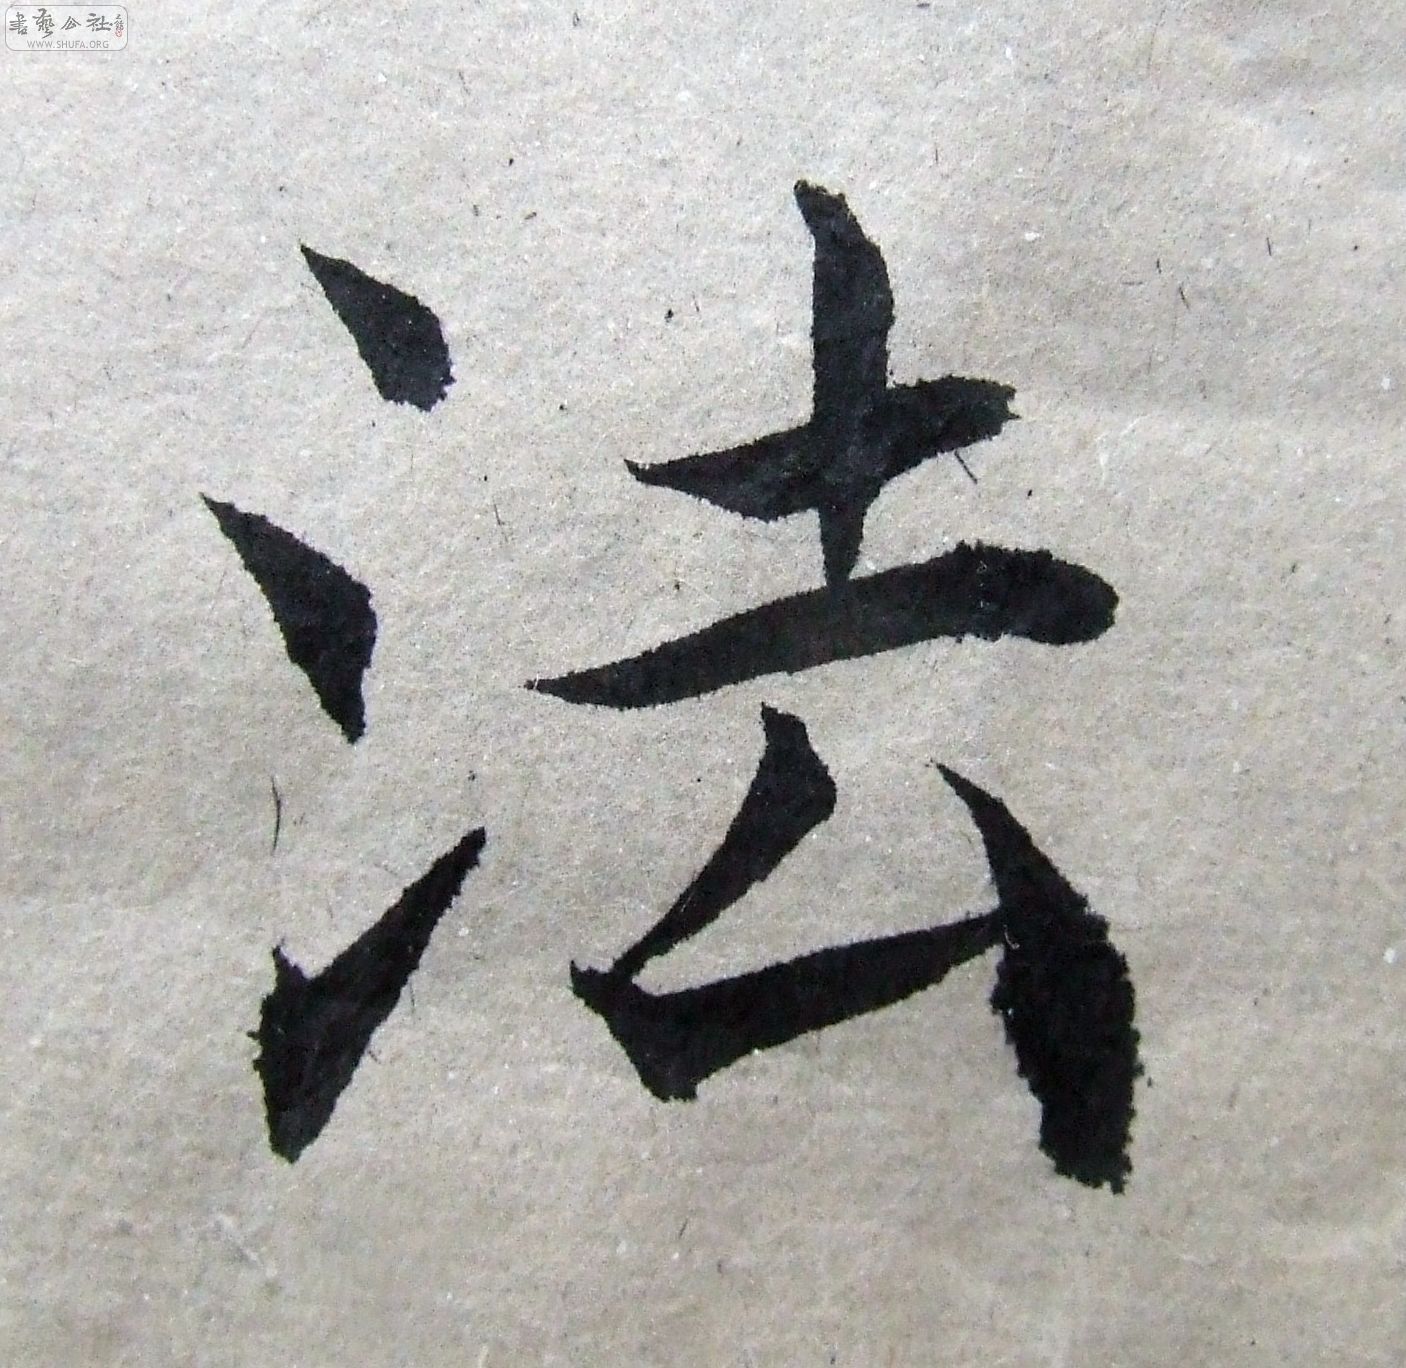 書藝公社
WWW.SHUFA.ORG
法